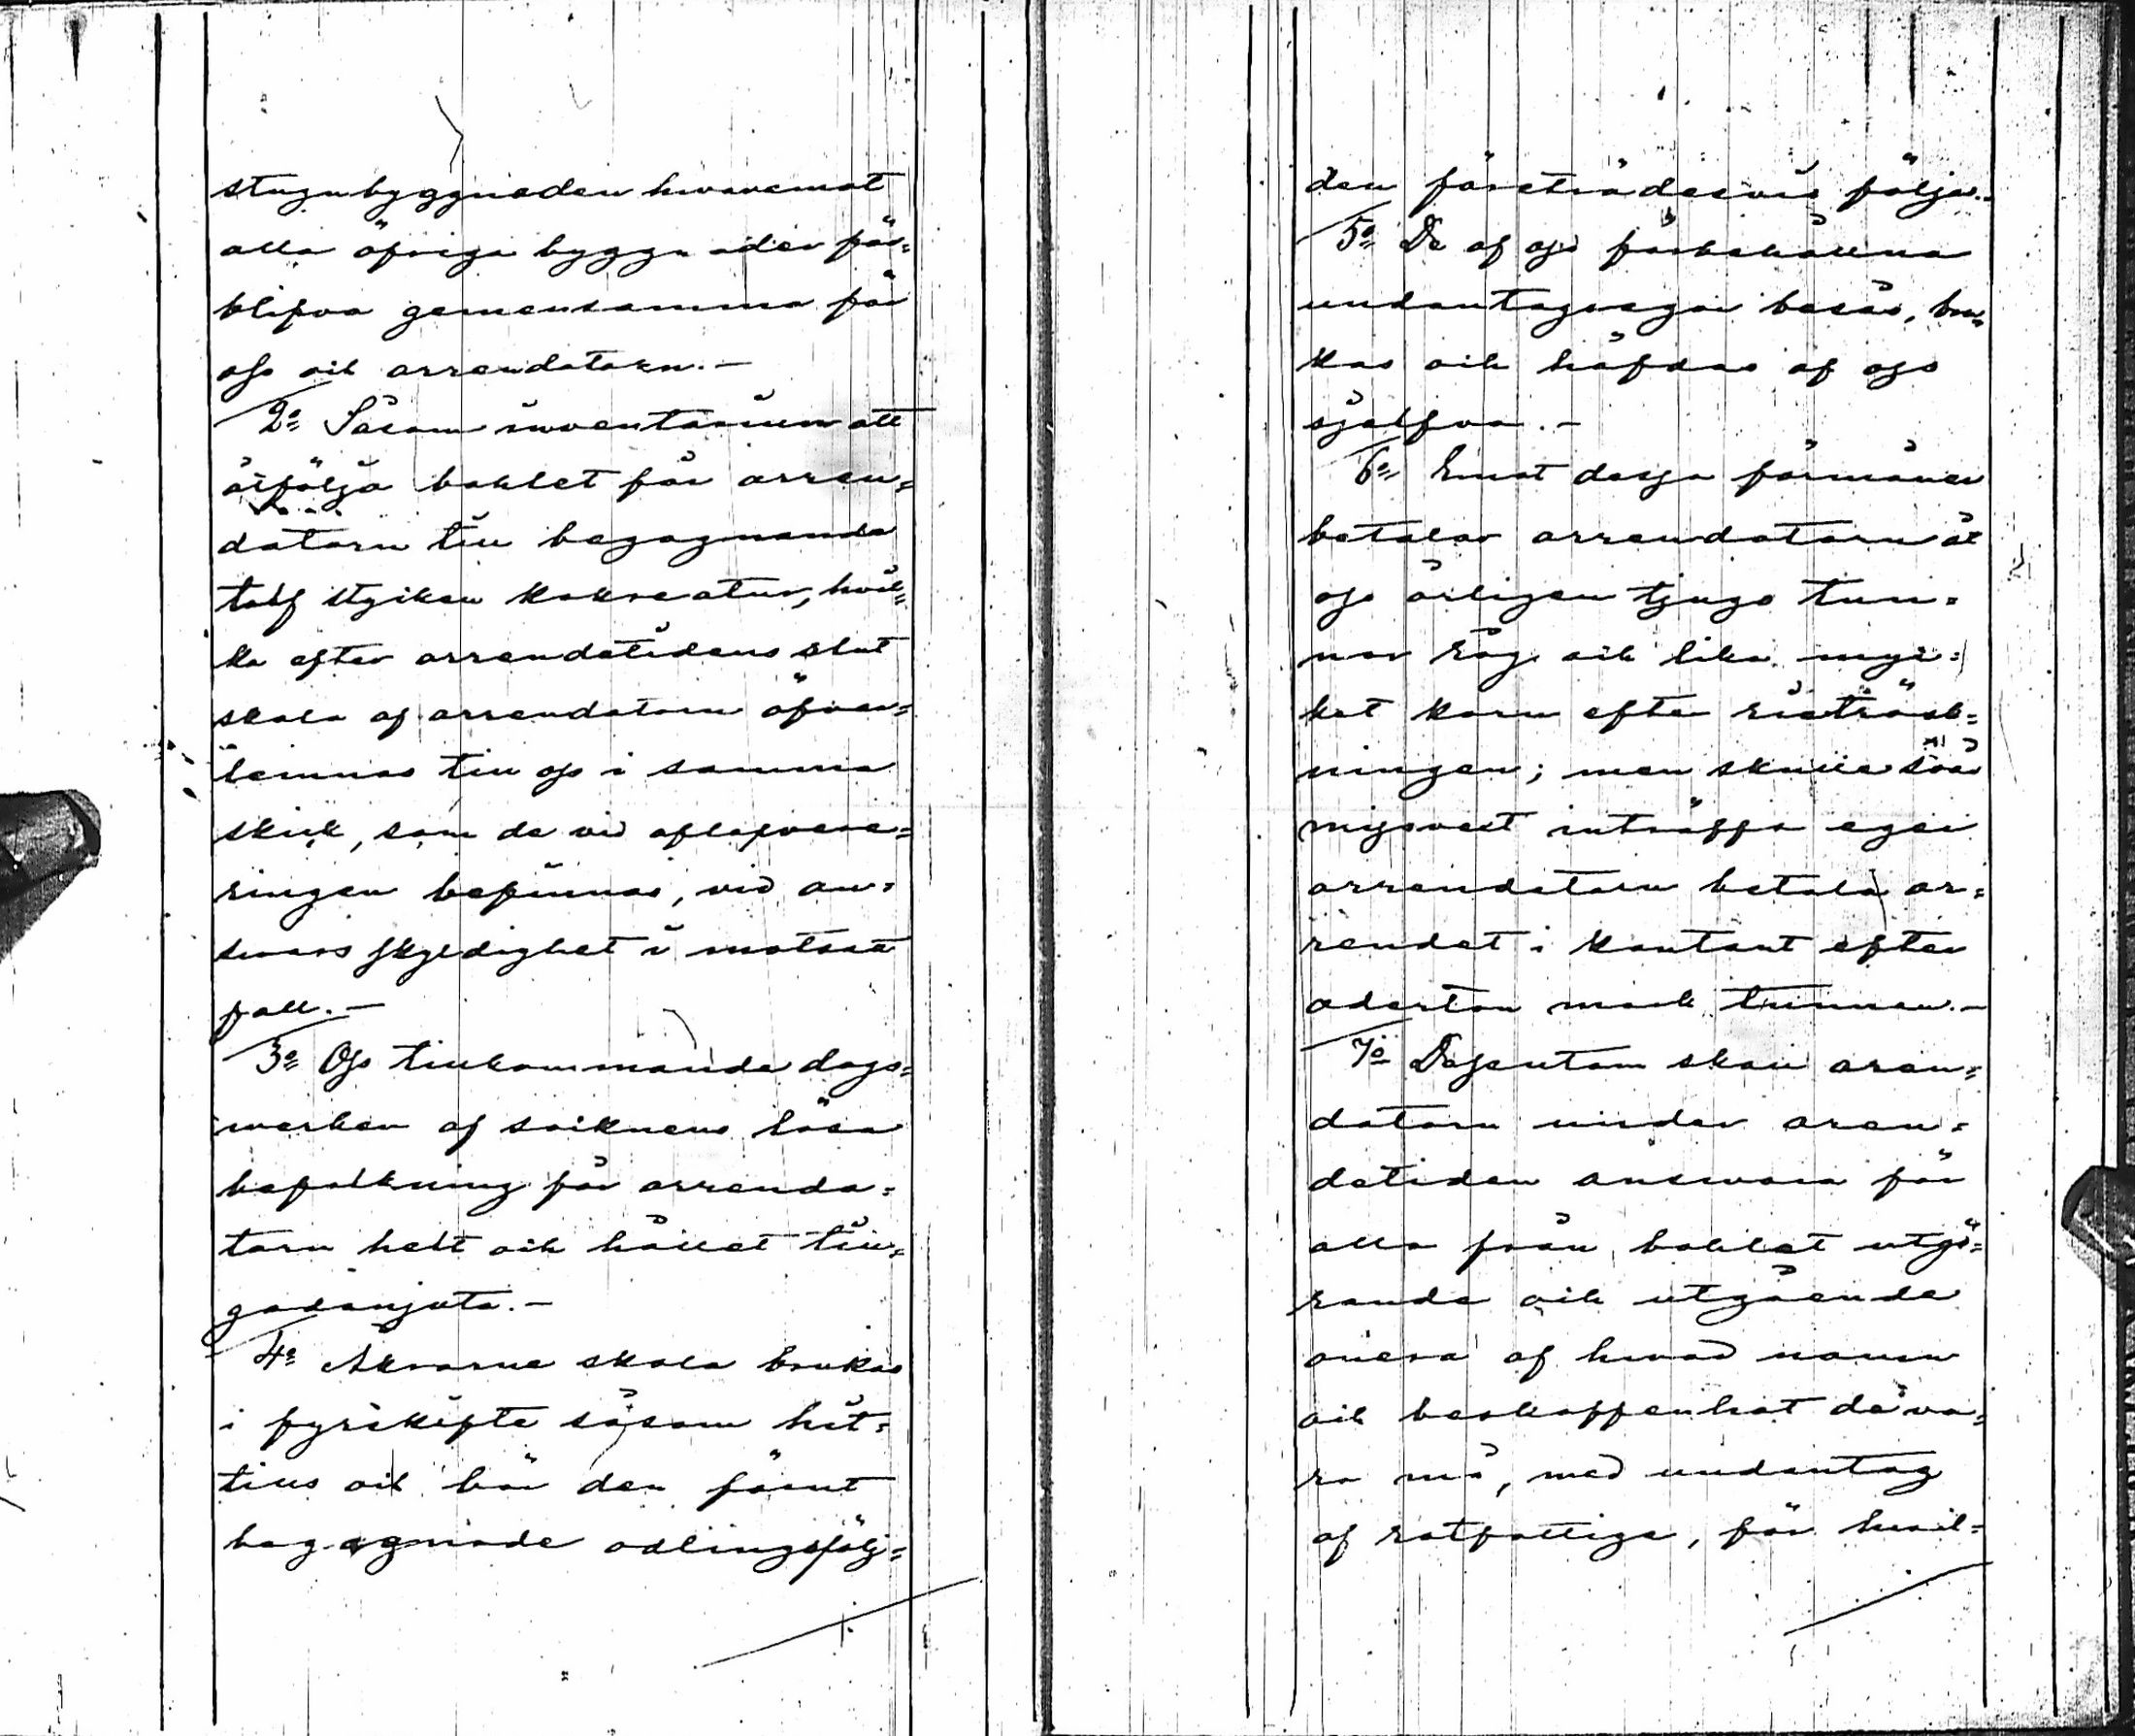 stugubyggnaden hvaremot
alla öfriga byggnader för=
blifva gemensamma för
oss och arrendatorn.—
2o Såsom inventarium att
åtfölja bohlet får arren=
datorn till begagnande
tolf stycken kokreatur, hvil=
ka efter arrendetidens slut
skola af arrendatorn öfver=
lemnas till oss i samma
skick, som de vid aflefvere=
ringen befinnas, vid an=
svars skyldighet i motsatt
fall.—
3o Oss tillkommande dags=
werken af socknens lösa
befolkning får arrenda=
torn helt och hållet till=
godonjuta.—
4o Åkrarne skola brukas
i fyrskifte såsom hit=
tills och bör den förut
begagnade odlingsfölj=
den företrädesvis följas.
5o De af oss förbehållna
undantagsegor besås, bru=
kas och häfdas af oss
sjelfva.—
6o Emot dessa förmåner
betalar arrendatorn åt
oss årligen tjugo tun=
nor råg och lika myc=
ket korn efter riströsk=
ningen; men skulle svår
missvext inträffa eger
arrendatorn betala ar=
rendet i kontant efter
aderton mark tunnan.—
7o Dessutom skall aren=
datorn under aren=
detiden answara för
alla från bohlet utgö=
rande och utgående
onera af hvad namn
och beskaffenhet de va=
ra må, med undantag
af rotfattige, för hvil=